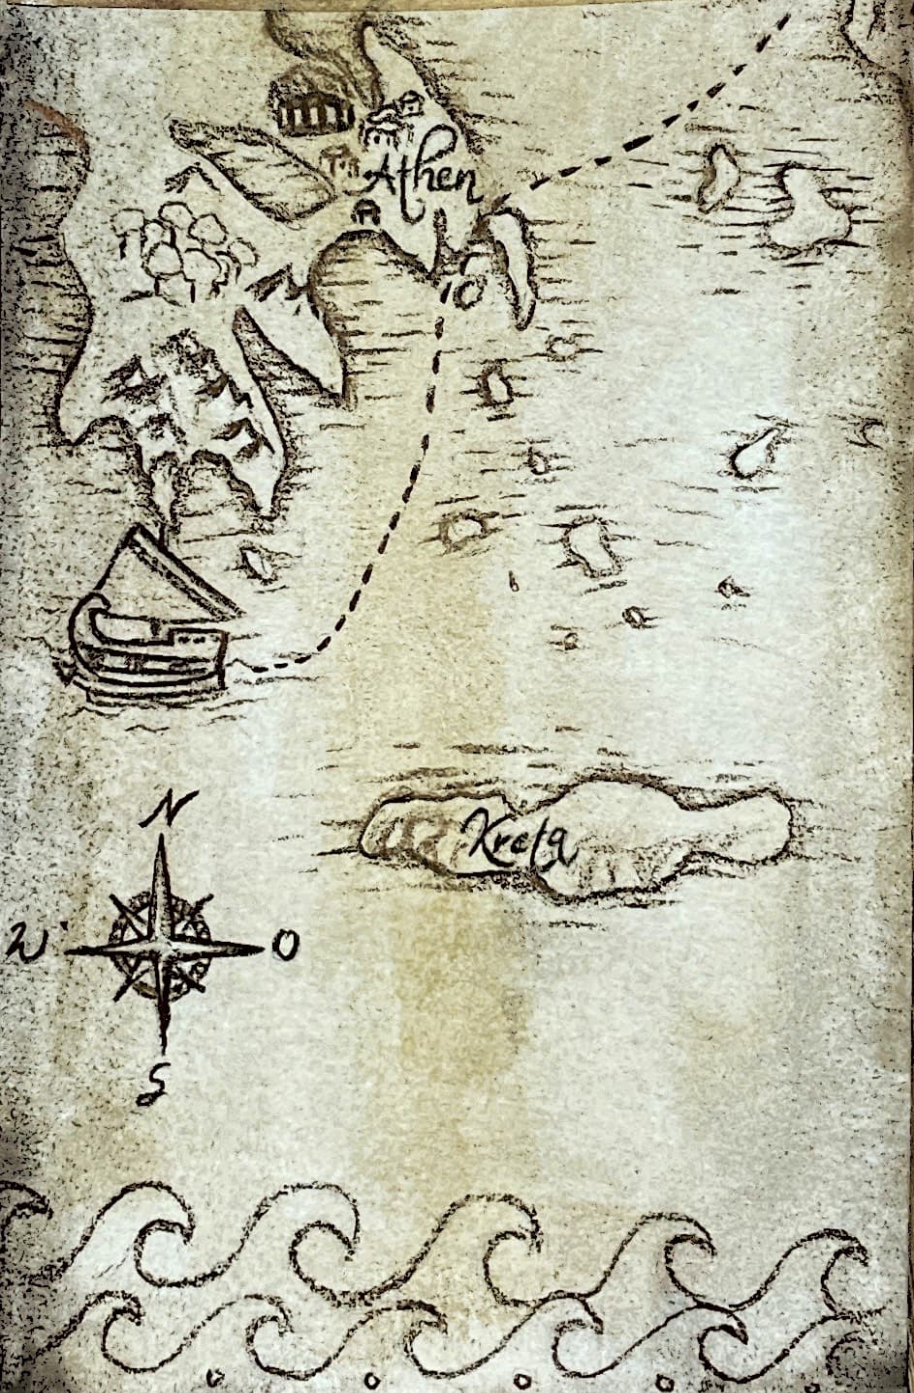 Athen
Kreta
N
W
O
S